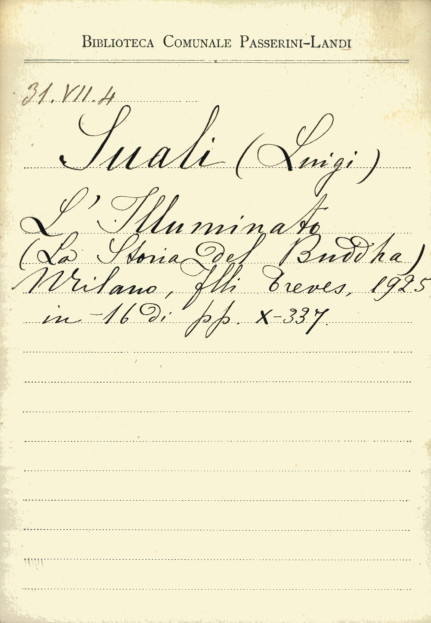 BIBLIOTECA COMUNALE PASSERINI-LANDI
31.VII.4
Suali (Luigi)
L'Illuminato
(La Storia del Buddha)
Milano, Flli Treves, 1925
in-16 di pp. X-337.